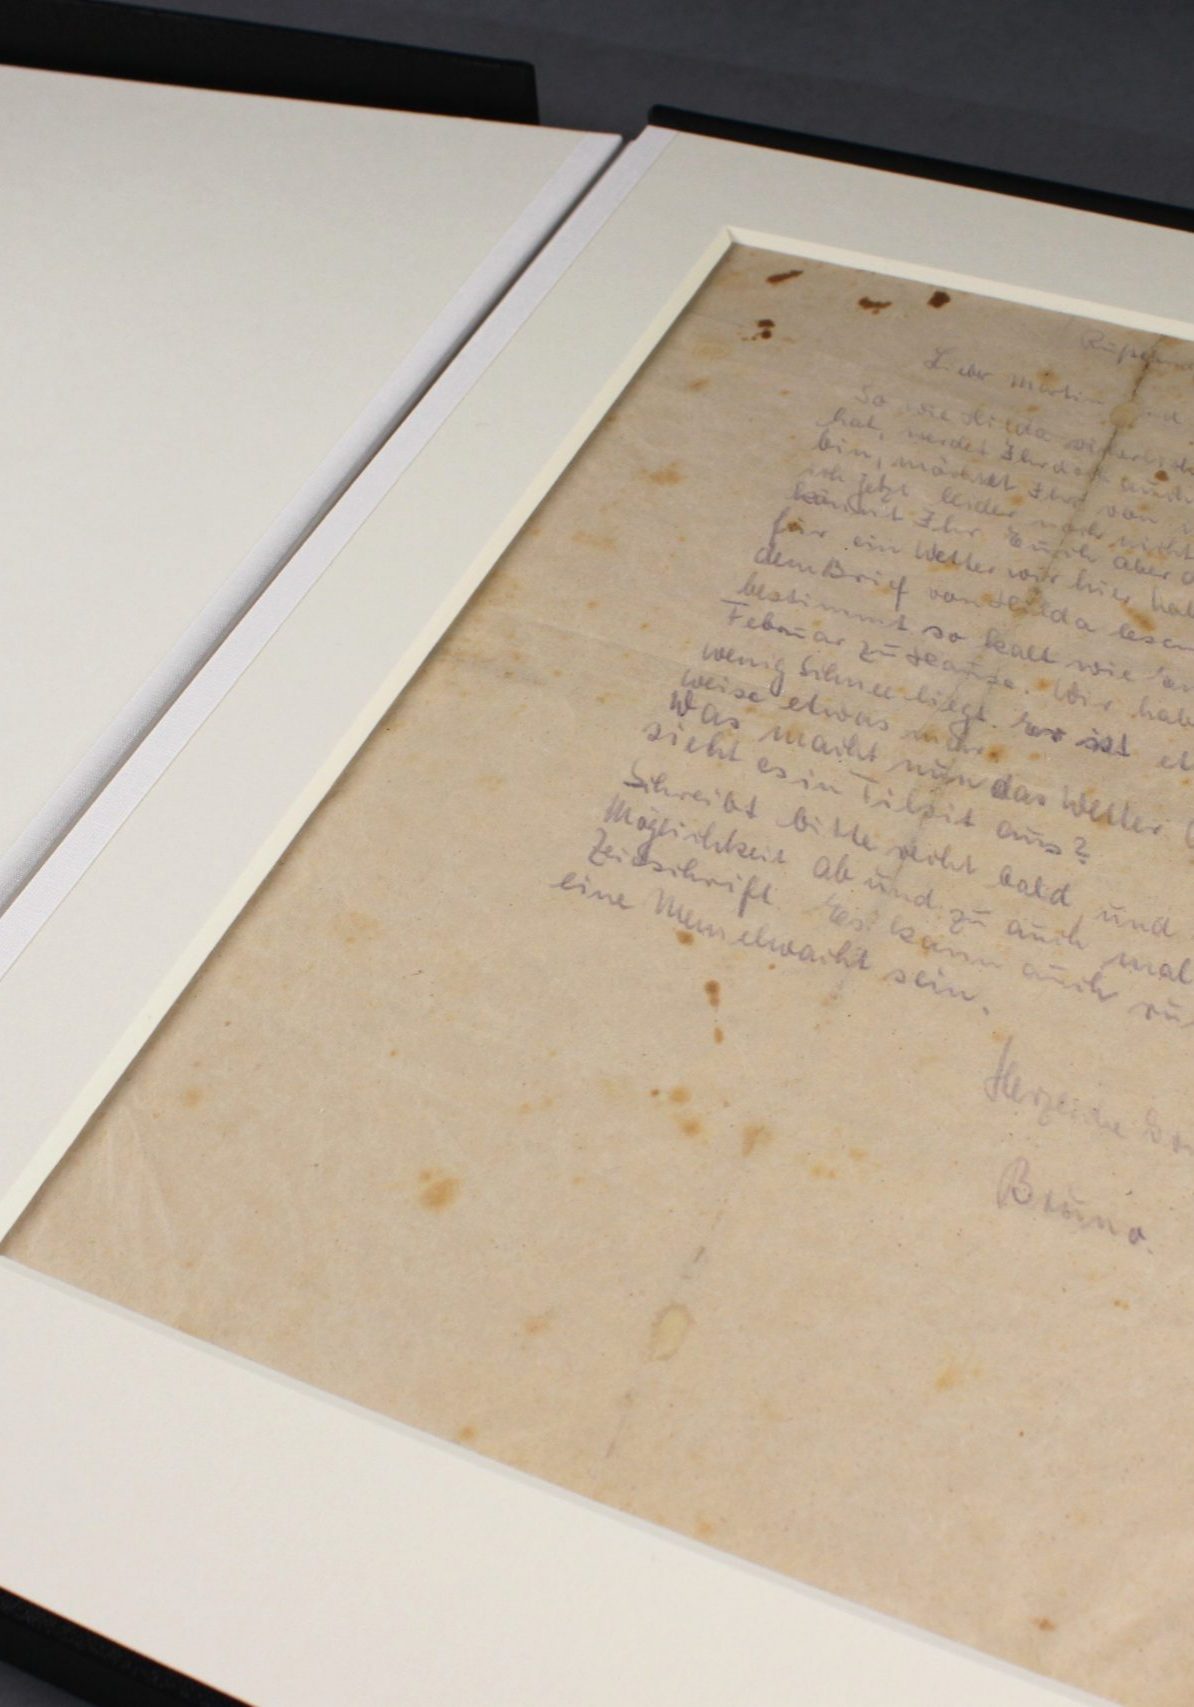 Lieber Martin und
So wie Hilda
hat, werdet Ihr doch auch
bin, möchtet Ihr von
ich jetzt leider noch nicht
könnt Ihr Euch aber
für ein Wetter wir hier hab
dem Brief von Hilda lesen
bestimmt so kalt wie
Februar zu Hause. Wir hab
wenig Schnee liegt. Er ist et
weise etwas mehr.
Was macht nun das Wetter
sieht es in Tilsit aus?
Schreibt bitte recht bald, und
Möglichkeit ab und zu auch mal
Zeitschrift. Es kann auch
eine Memelwacht sein.
Herzliche
Bruno.